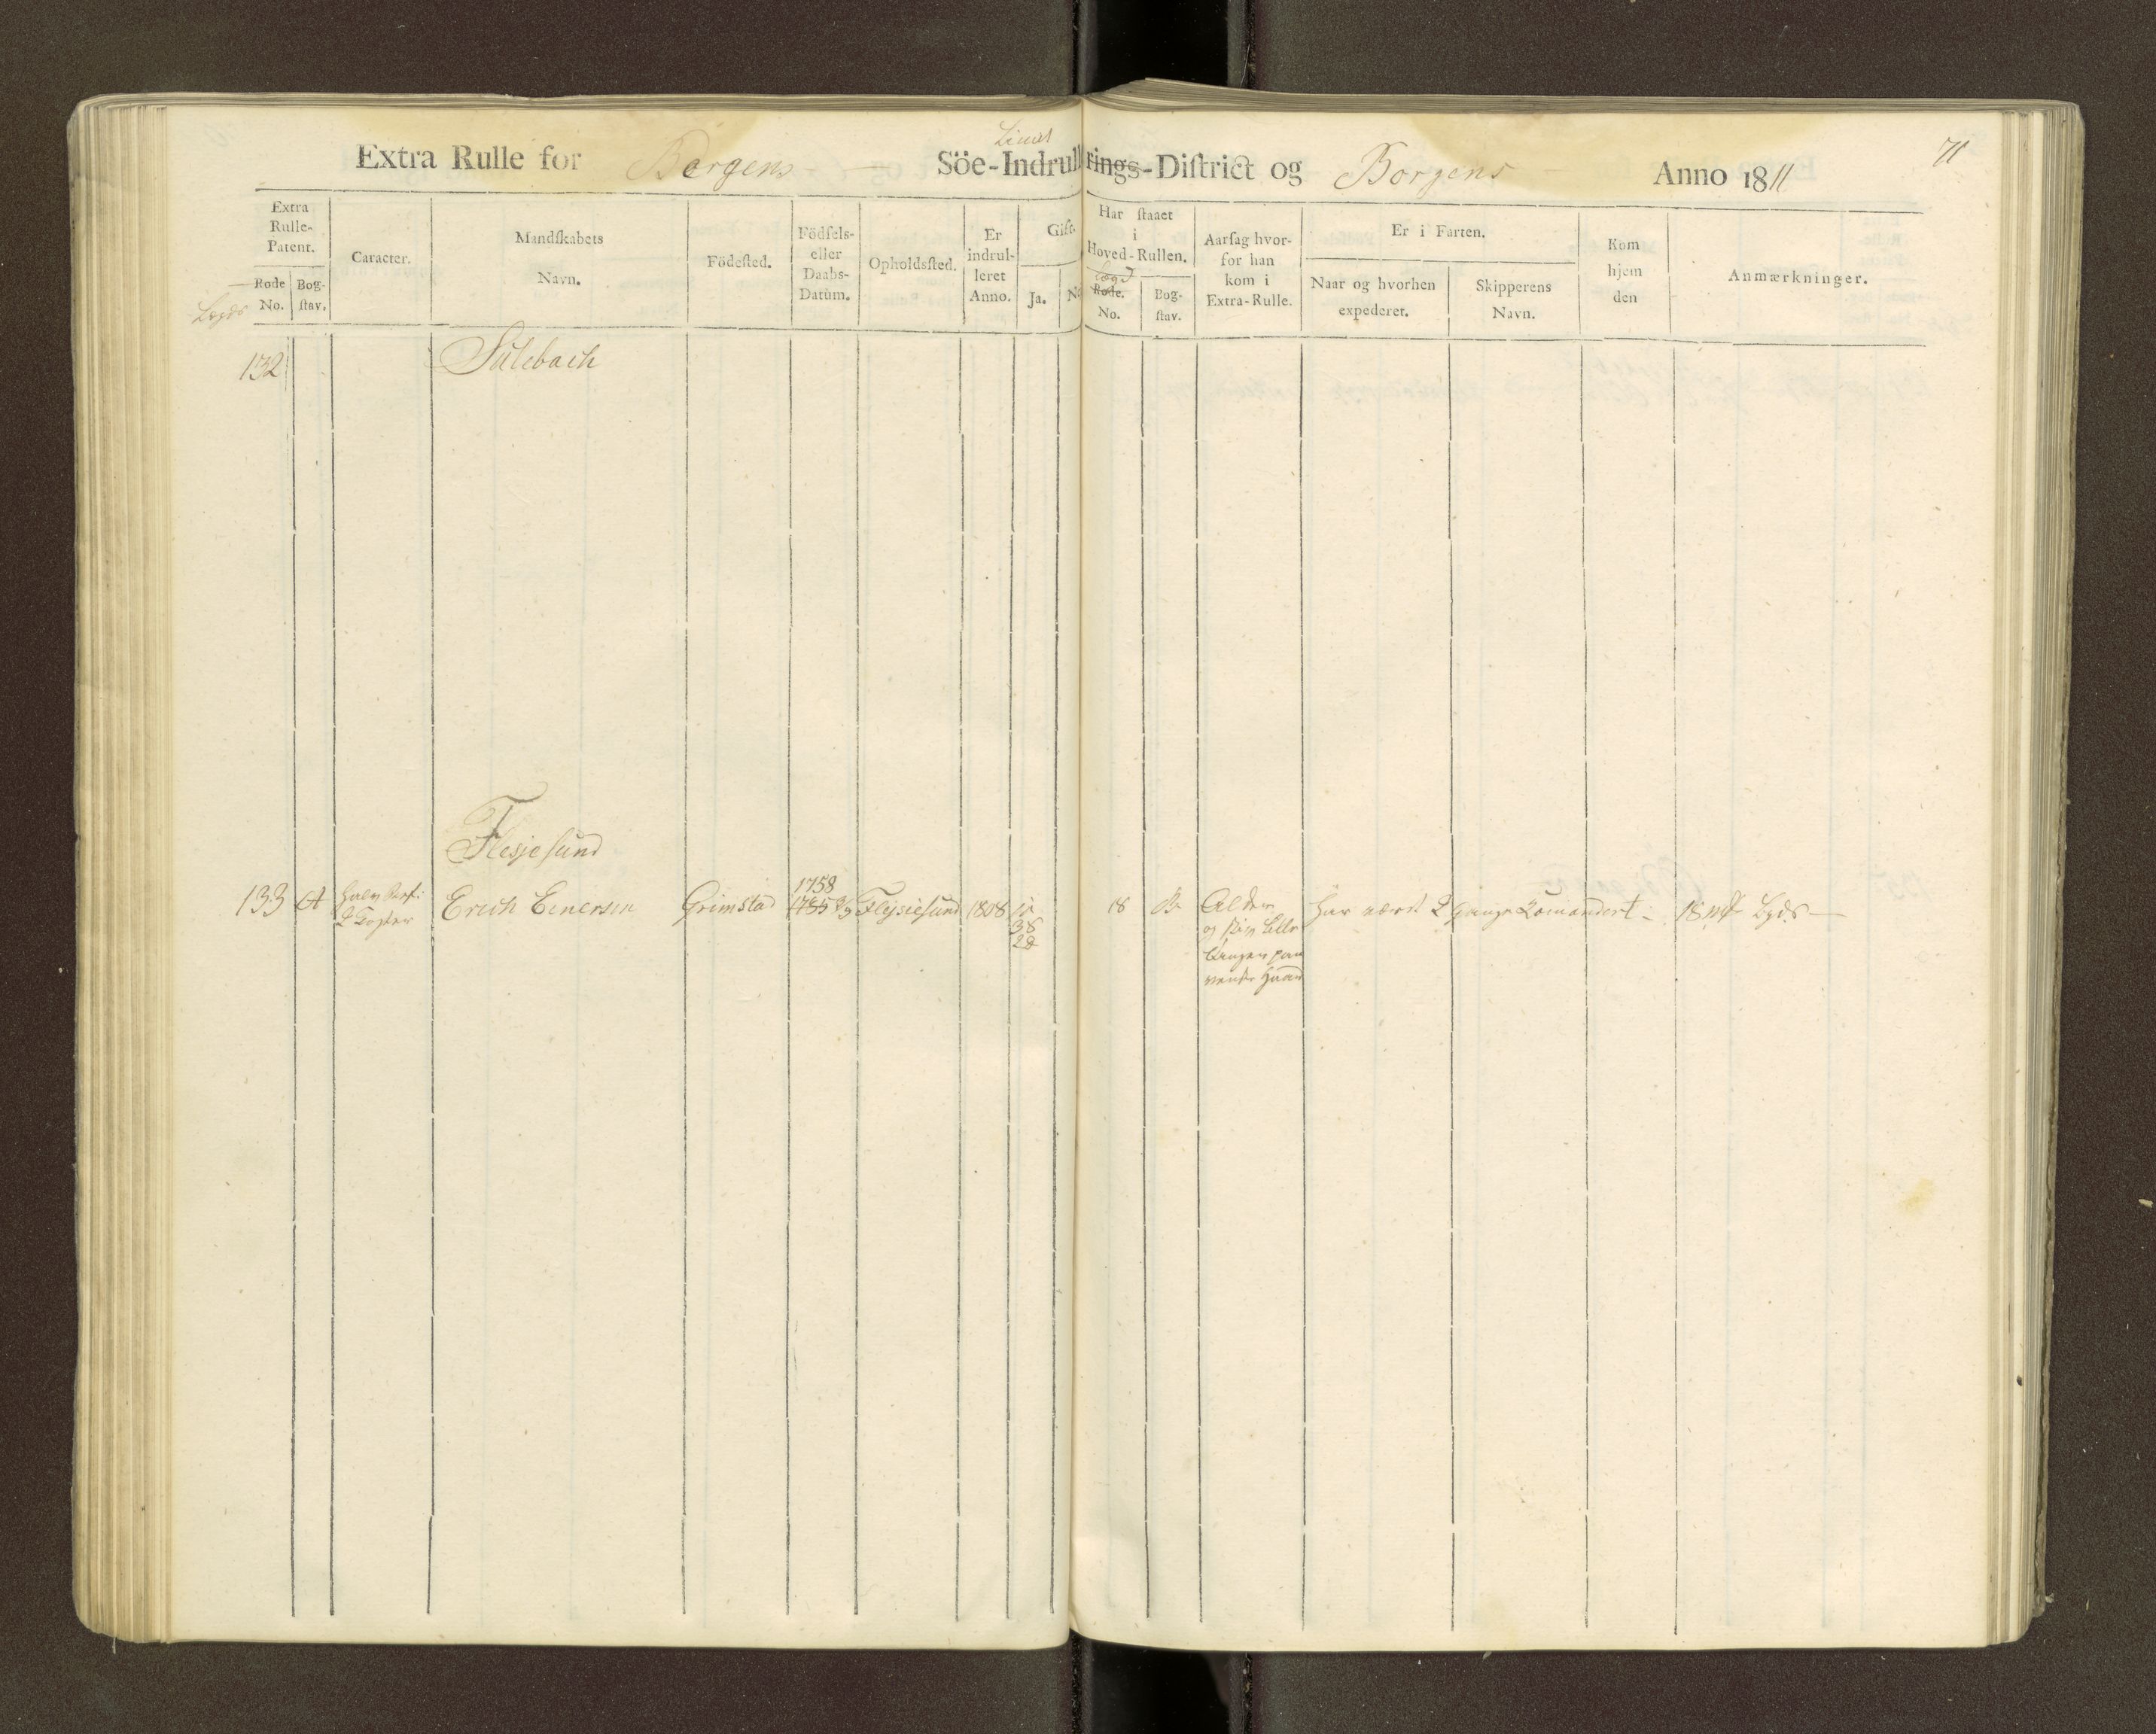 71
Limit
Extra Rulle for Bergens Söe-Indrullerings-Diſtrict og Borgens Anno 1811
Extra Rulle-Patent.
Rode No.
Bog-ſtav.
Lægds
Caracter.
Mandſkabets Navn.
Födeſted.
Födſels- eller Daabs-Datum.
Opholdsſted.
Er indrulleret Anno.
Gift.
Ja.
Har ſtaaet i Hoved-Rullen.
Lægd
Rode. No.
Bog-ſtav.
Aarſag hvorfor han kom i Extra-Rulle.
Er i Farten.
Naar og hvorhen expederet.
Skipperens Navn.
Kom hjem den
Anmærkninger.
132 Sulebach
Flesjesund
1758
133 A Halv Bef: Erich Einersen Grimstad 1755 Flejsiesund 1808 18 B Alder har været 2 gange Comandert 18
2 Togter
38
28
venstre Haand